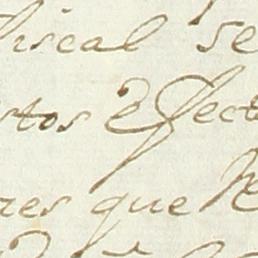 fiscal se
stos Efect
res que